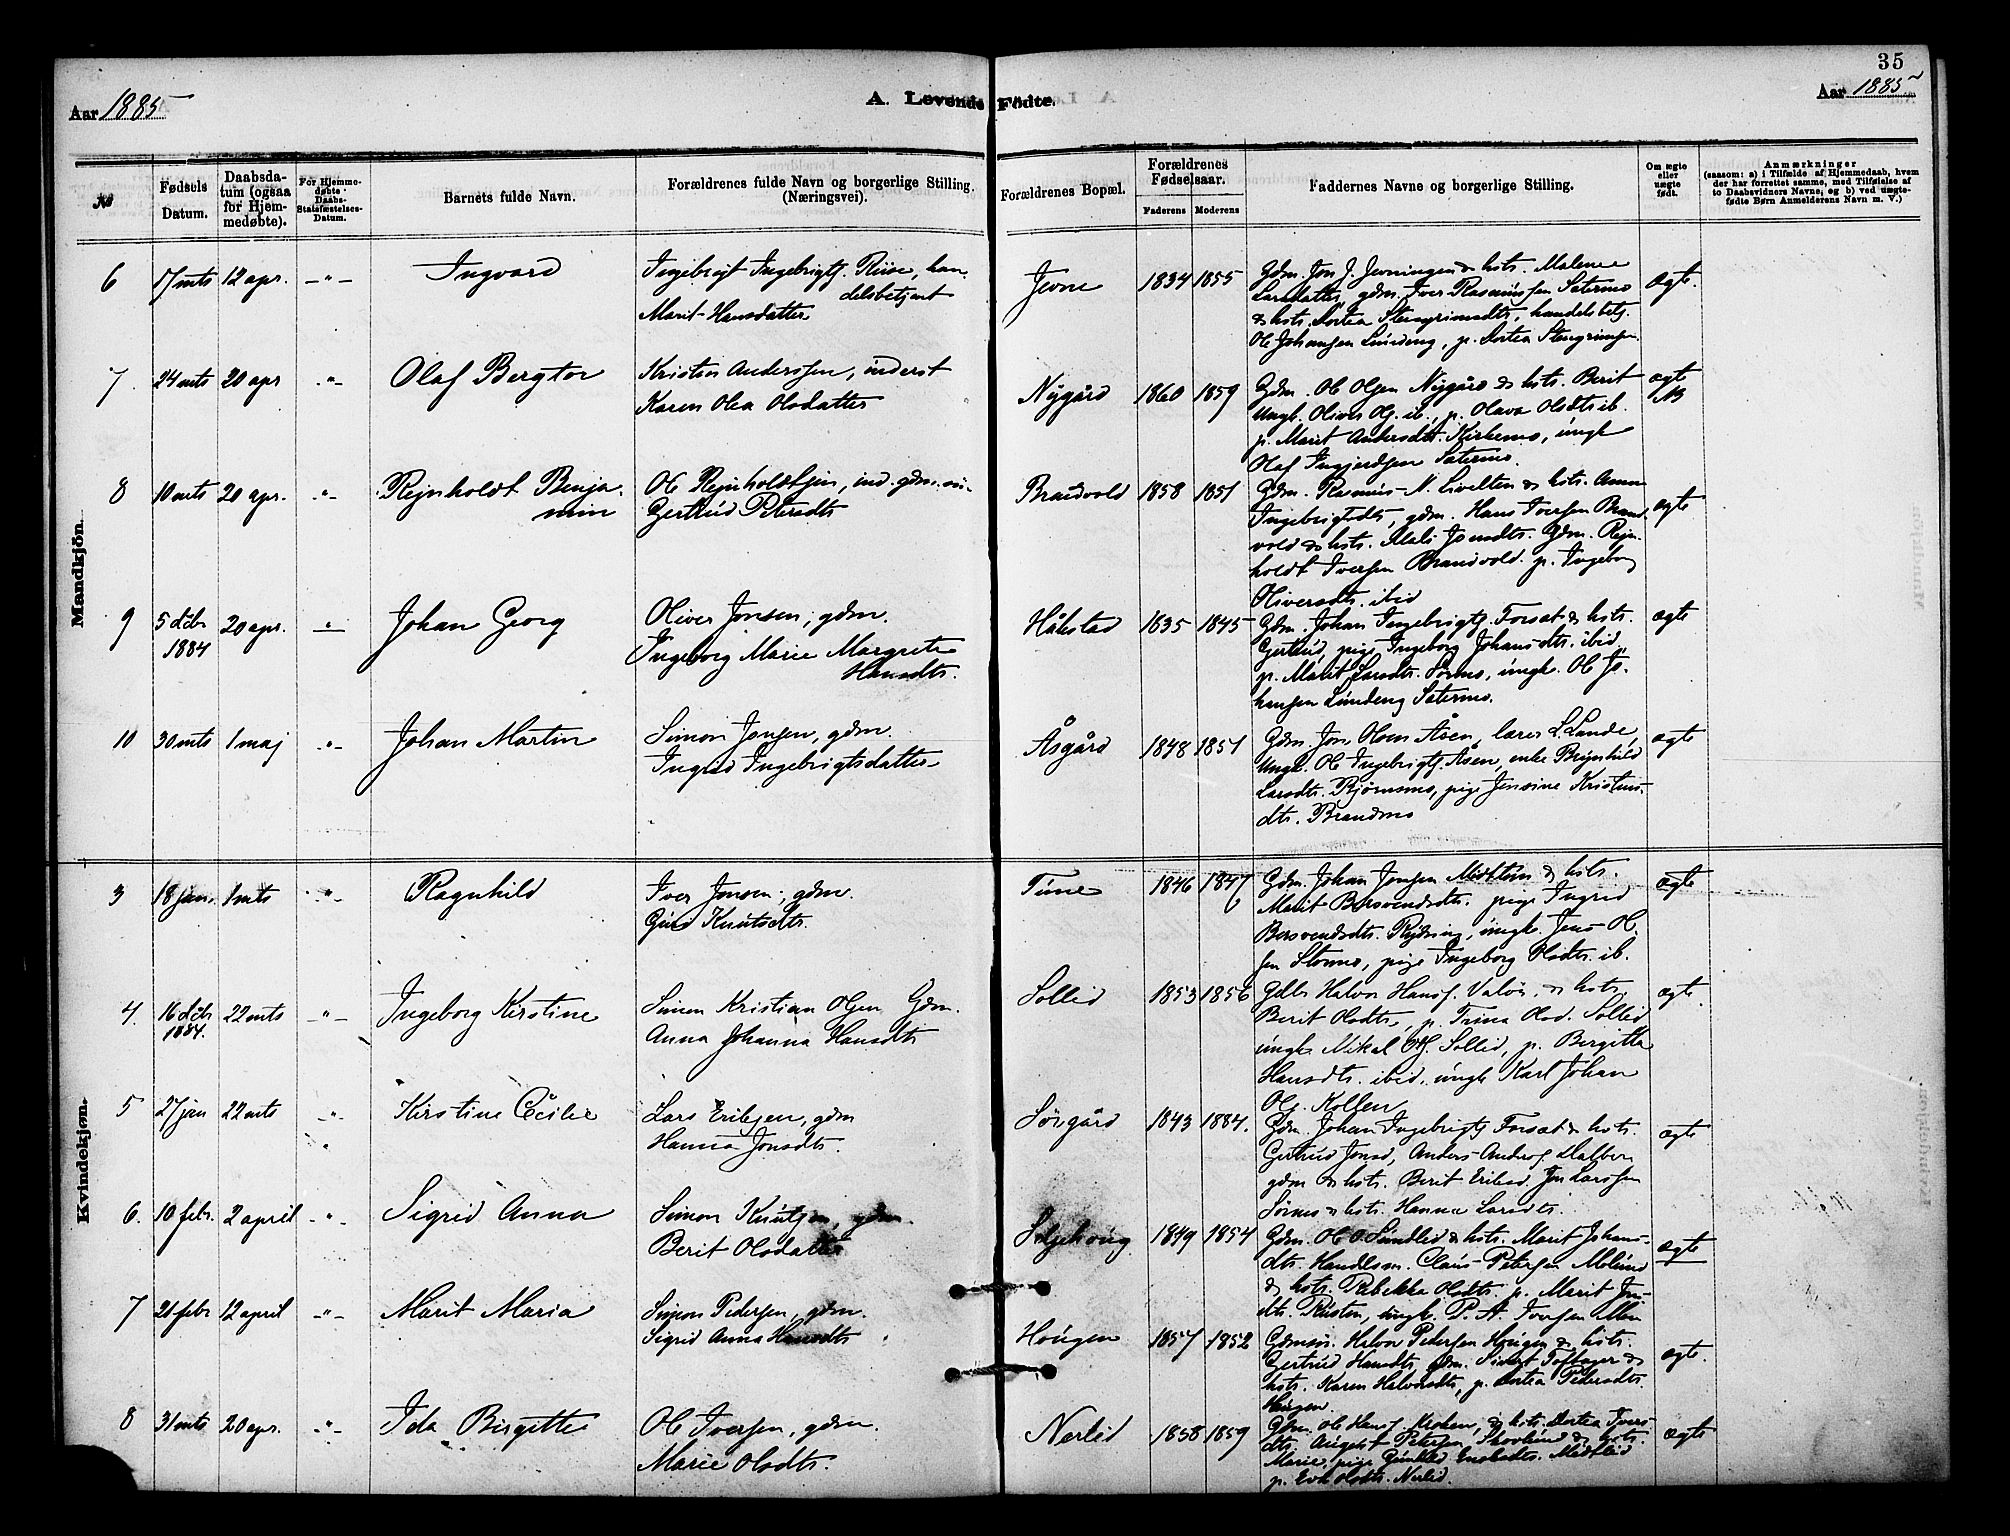 35
Aar 1885
A. Levende Födte.
Aar 1885
No
Fødsels Datum.
Daabsdatum (ogsaa for Hjemmedøbte).
For Hjemmedøbte Daabs-Stadfæstelses-Datum.
Barnets fulde Navn.
Forældrenes fulde Navn og borgerlige Stilling. (Næringsvei).
Forældrenes Bopæl.
Forældrenes Fødselsaar.
Faderens
Moderens
Faddernes Navne og borgerlige Stilling.
Om ægte eller uægte født.
Anmærkninger
(saasom: a) i Tilfælde af Hjemmedaab, hvem der har forrettet samme, med Tilføielse af to Daabsvidners Navne; og b) ved uægtefødte Børn Anmelderens Navn m. V.)
Mandkjön.
6 17 mts 12 apr. -"- Ingvard
Ingebrigt Ingebrigts. Riise, handelsbetjent
Marit Hansdatter
Jevne 1834 1855
Gdm. Jon J. Jevningen & hst. Malene
Larsdatter, gdm. Iver Rasmussen Sætermo
& hst. Dortea Stengrimsdtr, handelsbetj.
Ole Johansen Lundeng, p. Dortea Stengrimsen
ægte.
7. 24 mts 20 apr -"- Olaf Bergtor
Kristen Anderssen, inderst
Karen Olea Olsdatter
Nygård 1860 1859
Gdm. Ole Olsen Nygård & hst. Berit
Ungk. Oliver Ols. ib., p. Olava Olsdt. ib.
p. Marit Andersdt. Kirkemo, ungk
Olaf Ingjerdsen Sætermo.
ægte
8 10 mts 20 apr. -"- Rejnholdt Benjamin
Ole Rejnholdtsen, ind. gdm.
Gertrud Petersdtr
Brandvold 1858 1851
Gdm. Rasmus N. Livelten & hst. Anne
Ingebrigtsdtr, gdm. Hans Iversen Brandvold
& hst. Mali Jonsdtr. Gdm. Rejnholdt
Iversen Brandvold. p. Ingeborg
Oliversdtr. ibid
ægte
9 5 dcbr 1884 20 apr. -"- Johan Georg
Oliver Jonsen, gdm.
Ingeborg Marie Margrete
Hansdtr.
Håkstad 1835 1845
Gdm. Johan Ingebrigts. Forsæt & hst.
Gertrud, pige Ingeborg Johansdtr. ibid,
p. Marit Larsdtr. Sørmo, ungk. Ole Johansen
Lundeng Sætermo.
ægte
10 30 mts 1 maj -"- Johan Martin
Simon Jonsen, gdm.
Ingrid Ingebrigtsdatter
Åsgård 1848 1851
Gdm Jon Olsen Åsen, lærer L Lunde,
Ungk. Ole Ingebrigts. Åsen, enke Brynhild
Larsdtr. Bjørnsmo, pige Jensine Kristens-
dtr. Brandmo
ægte
Kvindekjøn.
3 18 jan. 1 mts -"- Ragnhild
Iver Jonsen, gdm.
Guri Knutsdtr.
Tune 1846 1847
Gdm. Johan Jonsen Midtlun & hst.
Marit Bersvendsdtr. pige Ingrid
Bersvendsdtr. Rydning, ungk. Jens Ol-
sen Stormo, pige Ingeborg Olsdtr. ib.
ægte
4. 16 dcbr 1884. 22 mts -"- Ingeborg Kirstine
Simon Kristian Olsen Gdm.
Anna Johanna Hansdtr
Sollid 1853 1856
Gdbr Halvor Hans. Valør, & hst.
Berit Olsdtr, p. Trina Olsd. Sollid
ungk Nikal Ols. Sollid, p. Birgitta
Hansdtr. ibid. ungk Karl Johan
Ols. Kollen
ægte
5 27 jan 22 mts " Kirstine Cecilie
Lars Eriksen, gdm
Hanna Jonsdtr.
Sørgård 1843 1884.
Gdm. Johan Ingebrigts Forsæt & hst.
Gertrud Jonsd, Anders Anders. Dalberg
gdm & hst. Berit Eriksd, Jon Larssen
Sørmo & hst. Hanna Larsdtr.
ægte
6. 10 febr. 2 april -"- Sigrid Anna
Simon Knutsen, gdm.
Berit Olsdatter
Seljehoug 1849 1854
Gdm. Ole O. Sundlid & hst. Marit Johans-
dtr. Handelsm. Claus Petersen Molund
& hst. Rebekka Olsdtr. p. Marit Jon-
dtr. Rusten, ungk. P. A. Iversen Moen
ægte
7 21 febr 12 april -"- Marit Maria
Simon Pedersen, gdm.
Sigrid Anna Hansdtr
Hougen 1857 1852
Gdmsøn. Halvor Pedersen Hougen & hst.
Gertrud Hansdtr, gdm. Sivert Toftager &
hst. Karen Halvorsdtr, p. Dortea Pedersdtr.
Hougen.
ægte.
8 31 mts 20 apr. -"- Ida Birgitte
Ole Iversen, gdm.
Marie Olsdtr.
Nerlid 1858 1859
Gdm. Ole Hans. Kroken, & hst. Dortea Ivers-
dtr. August Petersen Skovlund & hst.
Marie, pige Gunhild Enstadtr. Midtlid
p. Eva Olsdtr. Nerlid.
ægte